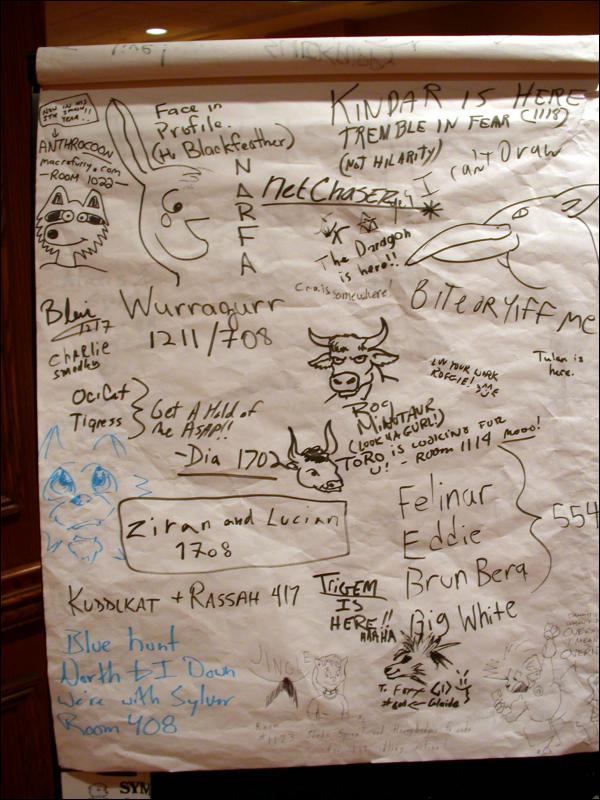 ANTHROCOON
macrofurry.com
-ROOM 1022-
Face in
Profile.
(Hi Blackfeather)
NARFA
KINDAR IS HERE
TREMBLE IN FEAR (1118)
(NOT HILARITY)
I
can't Draw
NetChaser
The Daragon
is here!!
is somewhere!
BITE OR YIFF ME
1217
Charlie
Wurragurr
1211/708
Tulen is
here.
LUV YOUR WORK
OciCat
Tigress
Get A Hold of
Me ASAP!!
-Dia 1702
ROG
MINOTAUR
(LOOK 4A GURL!)
TORO is LOOKING FOR
U! - ROOM 1114 mooo!
Ziran and Lucian
1708
Felinur
Eddie
Brun Bera
Big White
554
KUDDLKAT + RASSAH 417
TRIGEM
IS
HERE!!
HAHAHA
Blue hunt
North & I Down
We're with Sylver
Room 408
JINGLE
Room
#1123
SYM